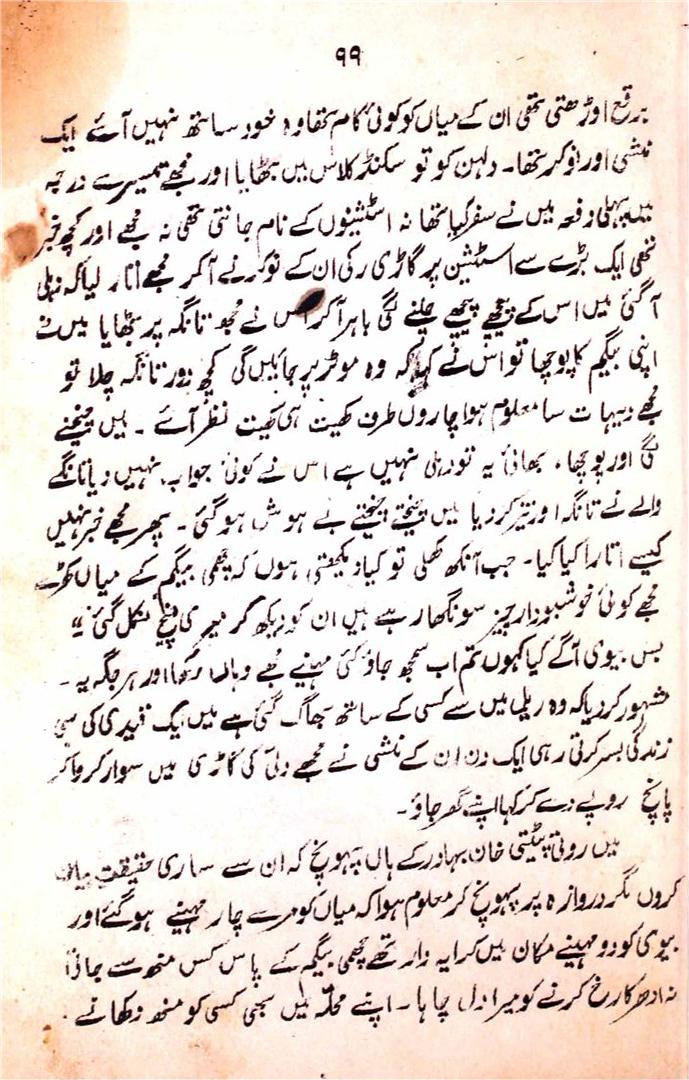 ۹۹
برقع اوڑھتی تھی ان کے میاں کو کوئی کام تھا وہ خود ساتھ نہیں آئے ایک
منشی اور نوکر تھا۔ دلہن کو تو سکنڈ کلاس میں بٹھایا اور مجھے تیسرے درجہ
میں پہلی دفعہ میں نے سفر کیا تھا نہ اسٹیشنوں کے نام جانتی تھی نہ مجھے اور کچھ خبر
تھی ایک بڑے سے اسٹیشن پر گاڑی رکی ان کے نوکر نے آ کر مجھے اتار لیا کہ دہلی
آ گئی میں اس کے پیچھے پیچھے چلنے لگی باہر آ کر اس نے مجھ تانگہ پر بٹھایا میں نے
اپنی بیگم کا پوچھا تو اس نے کہا کہ وہ موٹر پر جائیں گی کچھ دور تانگہ چلا تو
مجھے دیہات سا معلوم ہوا چاروں طرف کھیت ہی کھیت نظر آئے ۔ میں چیخنے
لگی اور پوچھا، بھائی یہ تو دہلی نہیں ہے اس نے کوئی جواب نہیں دیا تانگے
والے نے تانگہ اور تیز کر دیا میں چیختے چیختے بے ہوش ہو گئی ۔ پھر مجھے خبر نہیں
کیسے اتارا گیا۔ جب آنکھ کھلی تو کیا دیکھتی ہوں کہ چھمی بیگم کے میاں کھڑے
مجھے کوئی خوشبودار چیز سونگھا رہے ہیں ان کو دیکھ کر میری چیخ نکل گئی"
بس بیوی آگے کیا کہوں تم اب سمجھ جاؤ کئی مہینے مجھے وہاں رکھا اور ہر جگہ یہ ۔
مشہور کر دیا کہ وہ ریل میں سے کسی کے ساتھ بھاگ گئی ہے میں ایک قیدی کی سی
زندگی بسر کرتی رہی ایک دن ان کے منشی نے مجھے دلی کی گاڑی میں سوار کروا کر
پانچ روپے دے کر کہا اپنے گھر جاؤ۔
میں روتی پیٹتی خان بہادر کے ہاں پہونچ کہ ان سے ساری حقیقت بیان
کروں مگر دروازہ پر پہونچ کر معلوم ہوا کہ میاں کو مرے چار مہینے ہو گئے اور
بیوی کو دو مہینے مکان میں کرایہ دار تھے چھمی بیگم کے پاس کس منھ سے جاتی
نہ ادھر کا رخ کرنے کو میرا دل چاہا ۔ اپنے محلہ میں بھی کسی کو منھ دکھانے